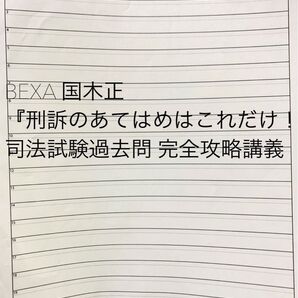 BEXA 国木正
『刑訴のあてはめはこれだけ！
司法試験過去問 完全攻略講義